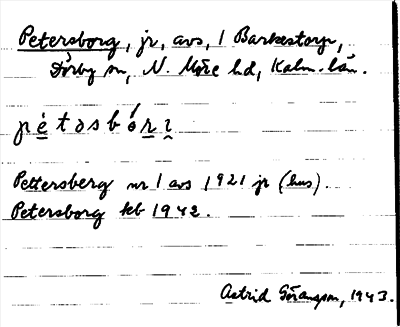 Petersborg, jr, avs, 1 Barkestorp,
Dörby sn, N. Möre hd, Kalm. län.
pètəsbórı
Pettersberg nr 1 avs 1921 jr (hus).
Petersborg kb 1942.
Astrid Göransson, 1943.